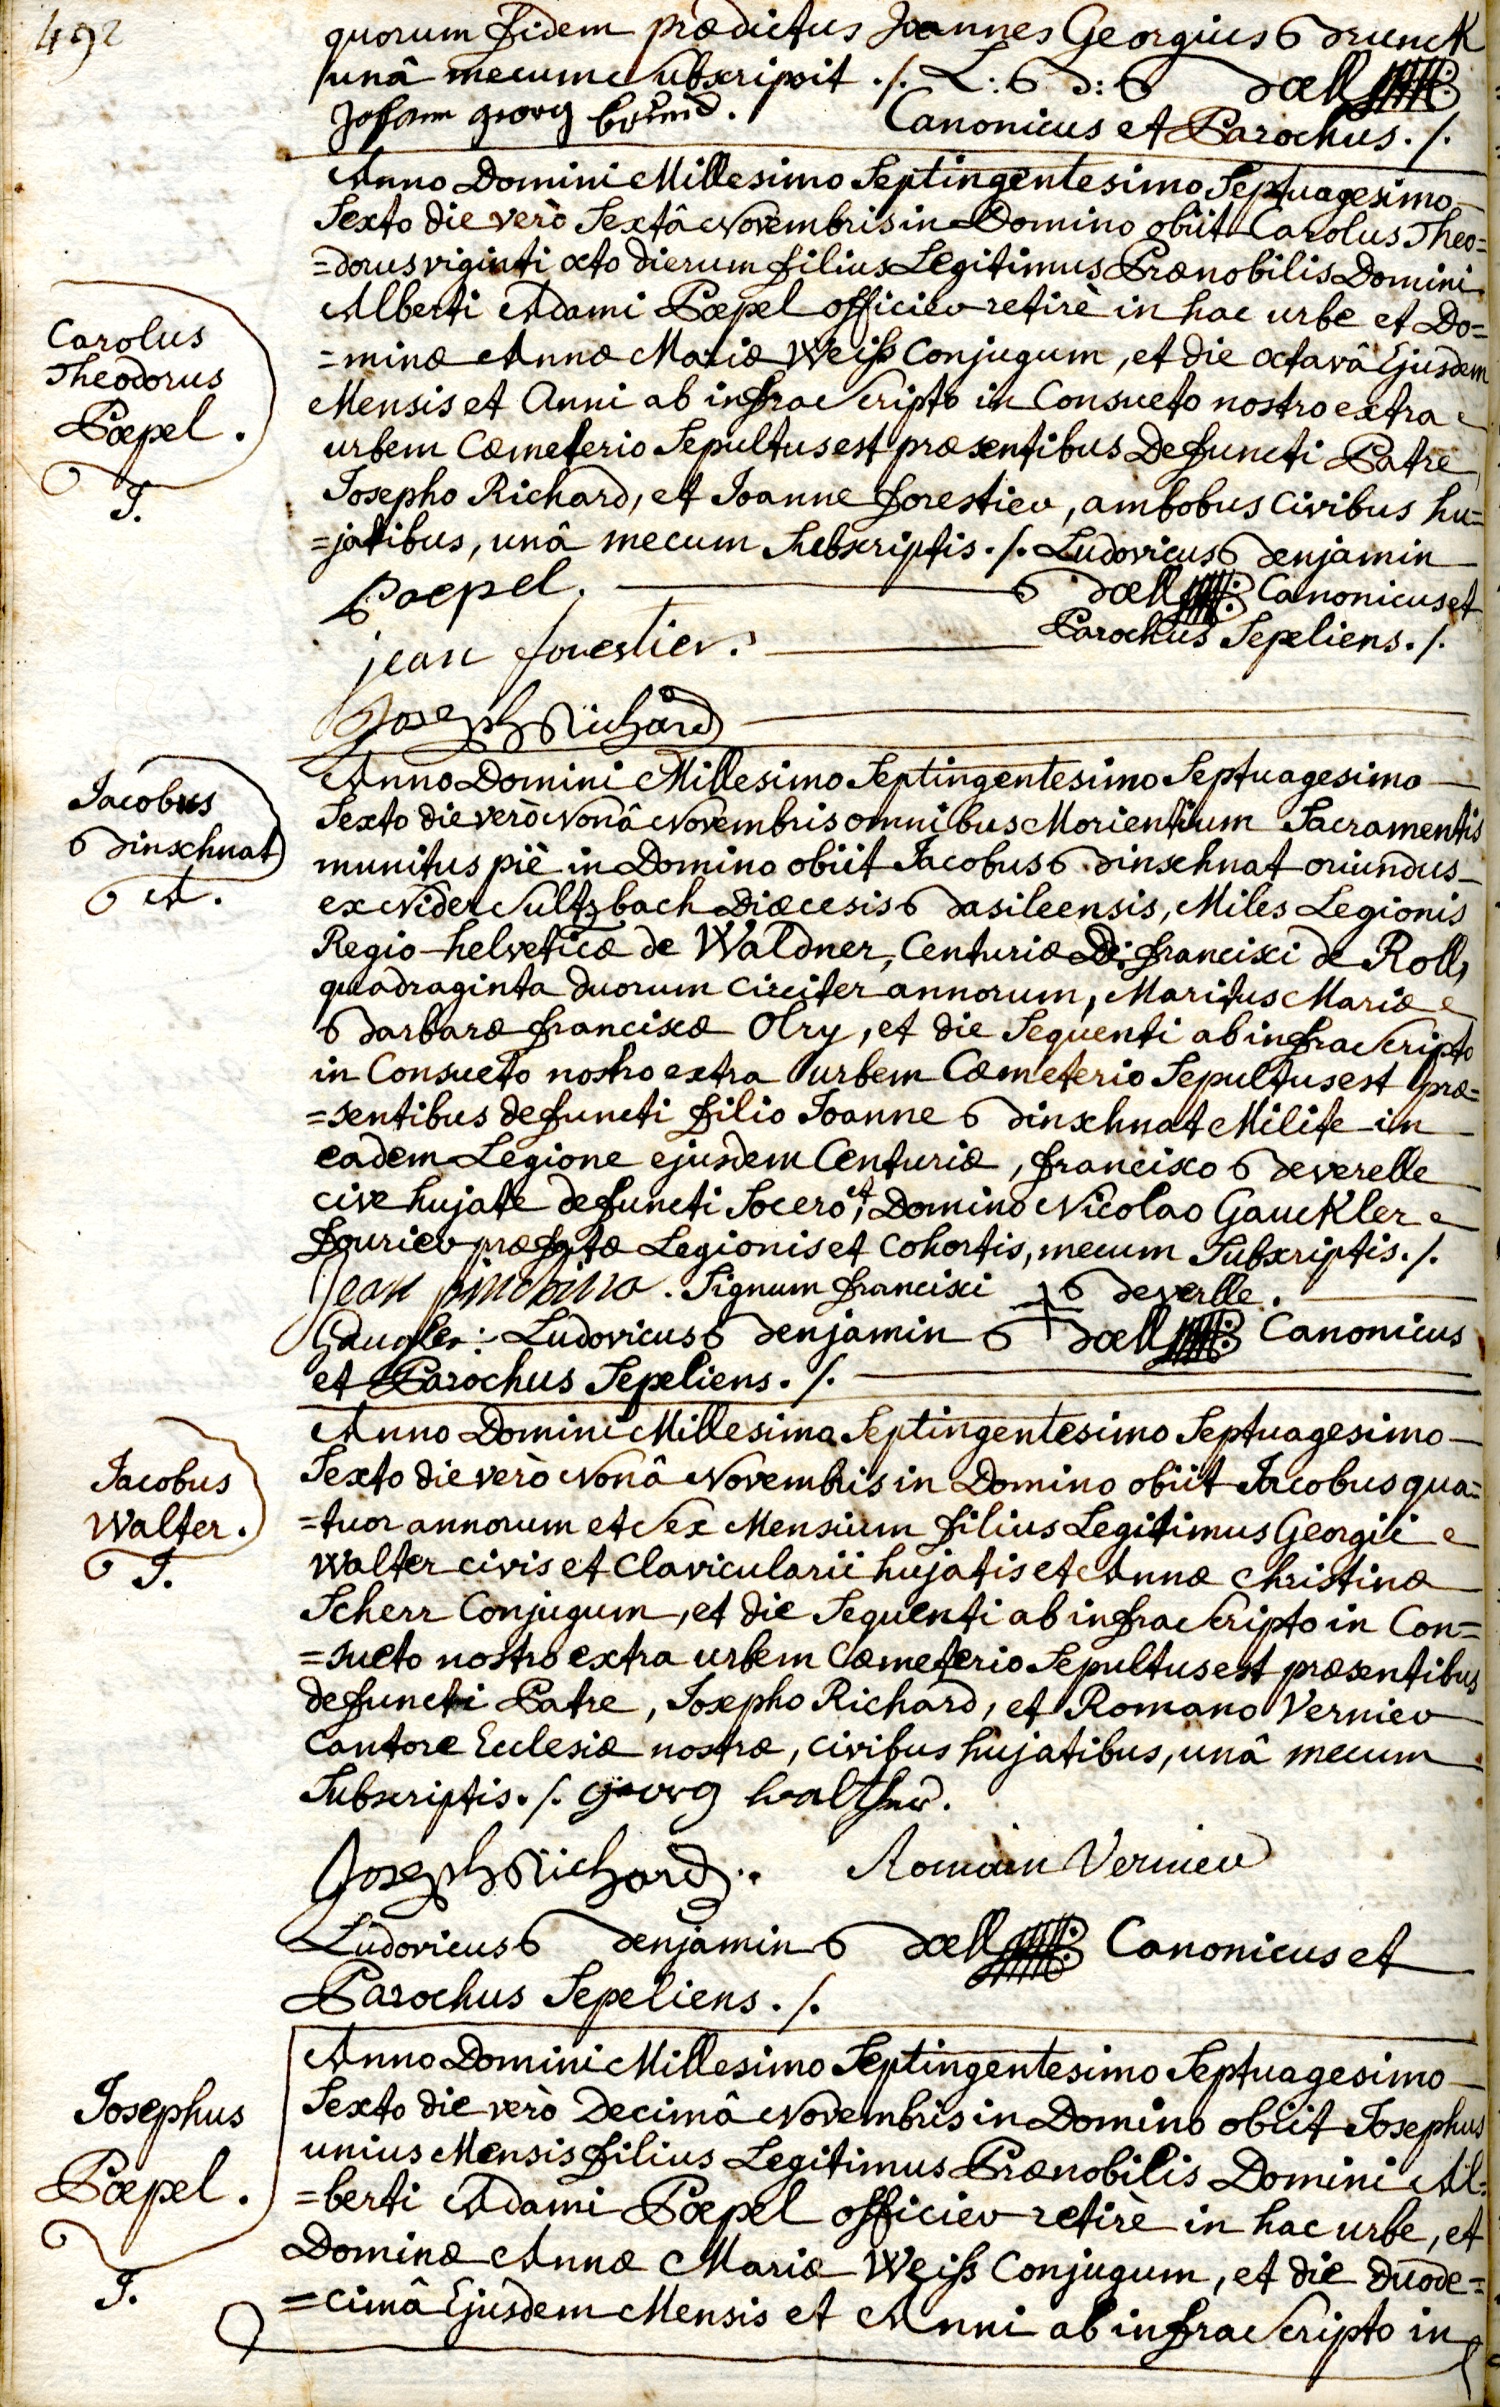 492
quorum fidem prædictus Joannes Georgius Brunck
unâ mecum subscripsit ./. L: B: Bœll
Johann georg
Canonicus et Parochus ./.
Anno Domini Millesimo Septingentesimo Septuagesimo
Sexto die verò Sextâ Novembris in Domino obiit Carolus Theo=
=dorus viginti octo dierum filius Legitimus Prænobilis Domini
Alberti Adami Pœpel officier retirè in hac urbe et Do=
=minæ Annæ Mariæ Weiß Conjugum, et die octavâ Ejusdem
Mensis et Anni ab infra Scripto in Consueto nostro extra
urbem Cœmeterio Sepultus est præsentibus Defuncti Patre,
Josepho Richard, et Joanne forestier, ambobus Civibus hu=
=jatibus, unâ mecum Subscriptis ./. Ludovicus Benjamin
Bœll Canonicus et
Parochus Sepeliens ./.
Carolus
Theodorus
Pœpel.
J.
Poepel.
jean forestier.
Joseph Richard
Anno Domini Millesimo Septingentesimo Septuagesimo
Sexto die verò Nonâ Novembris omnibus Morientium Sacramentis
munitus piè in Domino obiit Jacobus Binschnat oriundus
ex Nider Sultzbach Diœcesis Basileensis, Miles Legionis
Regio-helveticæ de Waldner, Centuriæ D: francisci de Roll,
quadraginta duorum circiter annorum, Maritus Mariæ
Barbaræ franciscæ Olry, et die Sequenti ab infra Scripto
in Consueto nostro extra urbem Cœmeterio Sepultus est præ=
=sentibus defuncti filio Joanne Binschnat Milite in
eadem Legione ejusdem Centuriæ, francisco Beverelle
cive hujate defuncti Socero, et Domino Nicolao Gauckler
fourier præfatæ Legionis et Cohortis, mecum Subscriptis ./.
Jean . Signum francisci + Beverlle.
Gaugler: Ludovicus Benjamin Bœll Canonicus
et Parochus Sepeliens ./.
Jacobus
Binschnat
A.
Anno Domini Millesimo Septingentesimo Septuagesimo
Sexto die verò Nonâ Novembris in Domino obiit Jacobus qua=
=tuor annorum et Sex Mensium filius Legitimus Georgii
Walter civis et Clavicularii hujatis et Annæ Christinæ
Scherr Conjugum, et die Sequenti ab infra Scripto in Con=
=sueto nostro extra urbem Cœmeterio Sepultus est præsentibus
defuncti Patre, Josepho Richard, et Romano Vernier
Cantore Ecclesiæ nostræ, civibus hujatibus, unâ mecum
Subscriptis ./. georg walther.
Joseph Richard. Romain Vernier
Ludovicus Benjamin Bœll Canonicus et
Parochus Sepeliens ./.
Jacobus
Walter.
J.
Anno Domini Millesimo Septingentesimo Septuagesimo
Sexto die verò Decimâ Novembris in Domino obiit Josephus
unius Mensis filius Legitimus Prænobilis Domini Al=
=berti Adami Pœpel officier retirè in hac urbe, et
Dominæ Annæ Mariæ Weiß Conjugum, et die Duode=
=cimâ Ejusdem Mensis et Anni ab infra Scripto in
Josephus
Pœpel.
J.